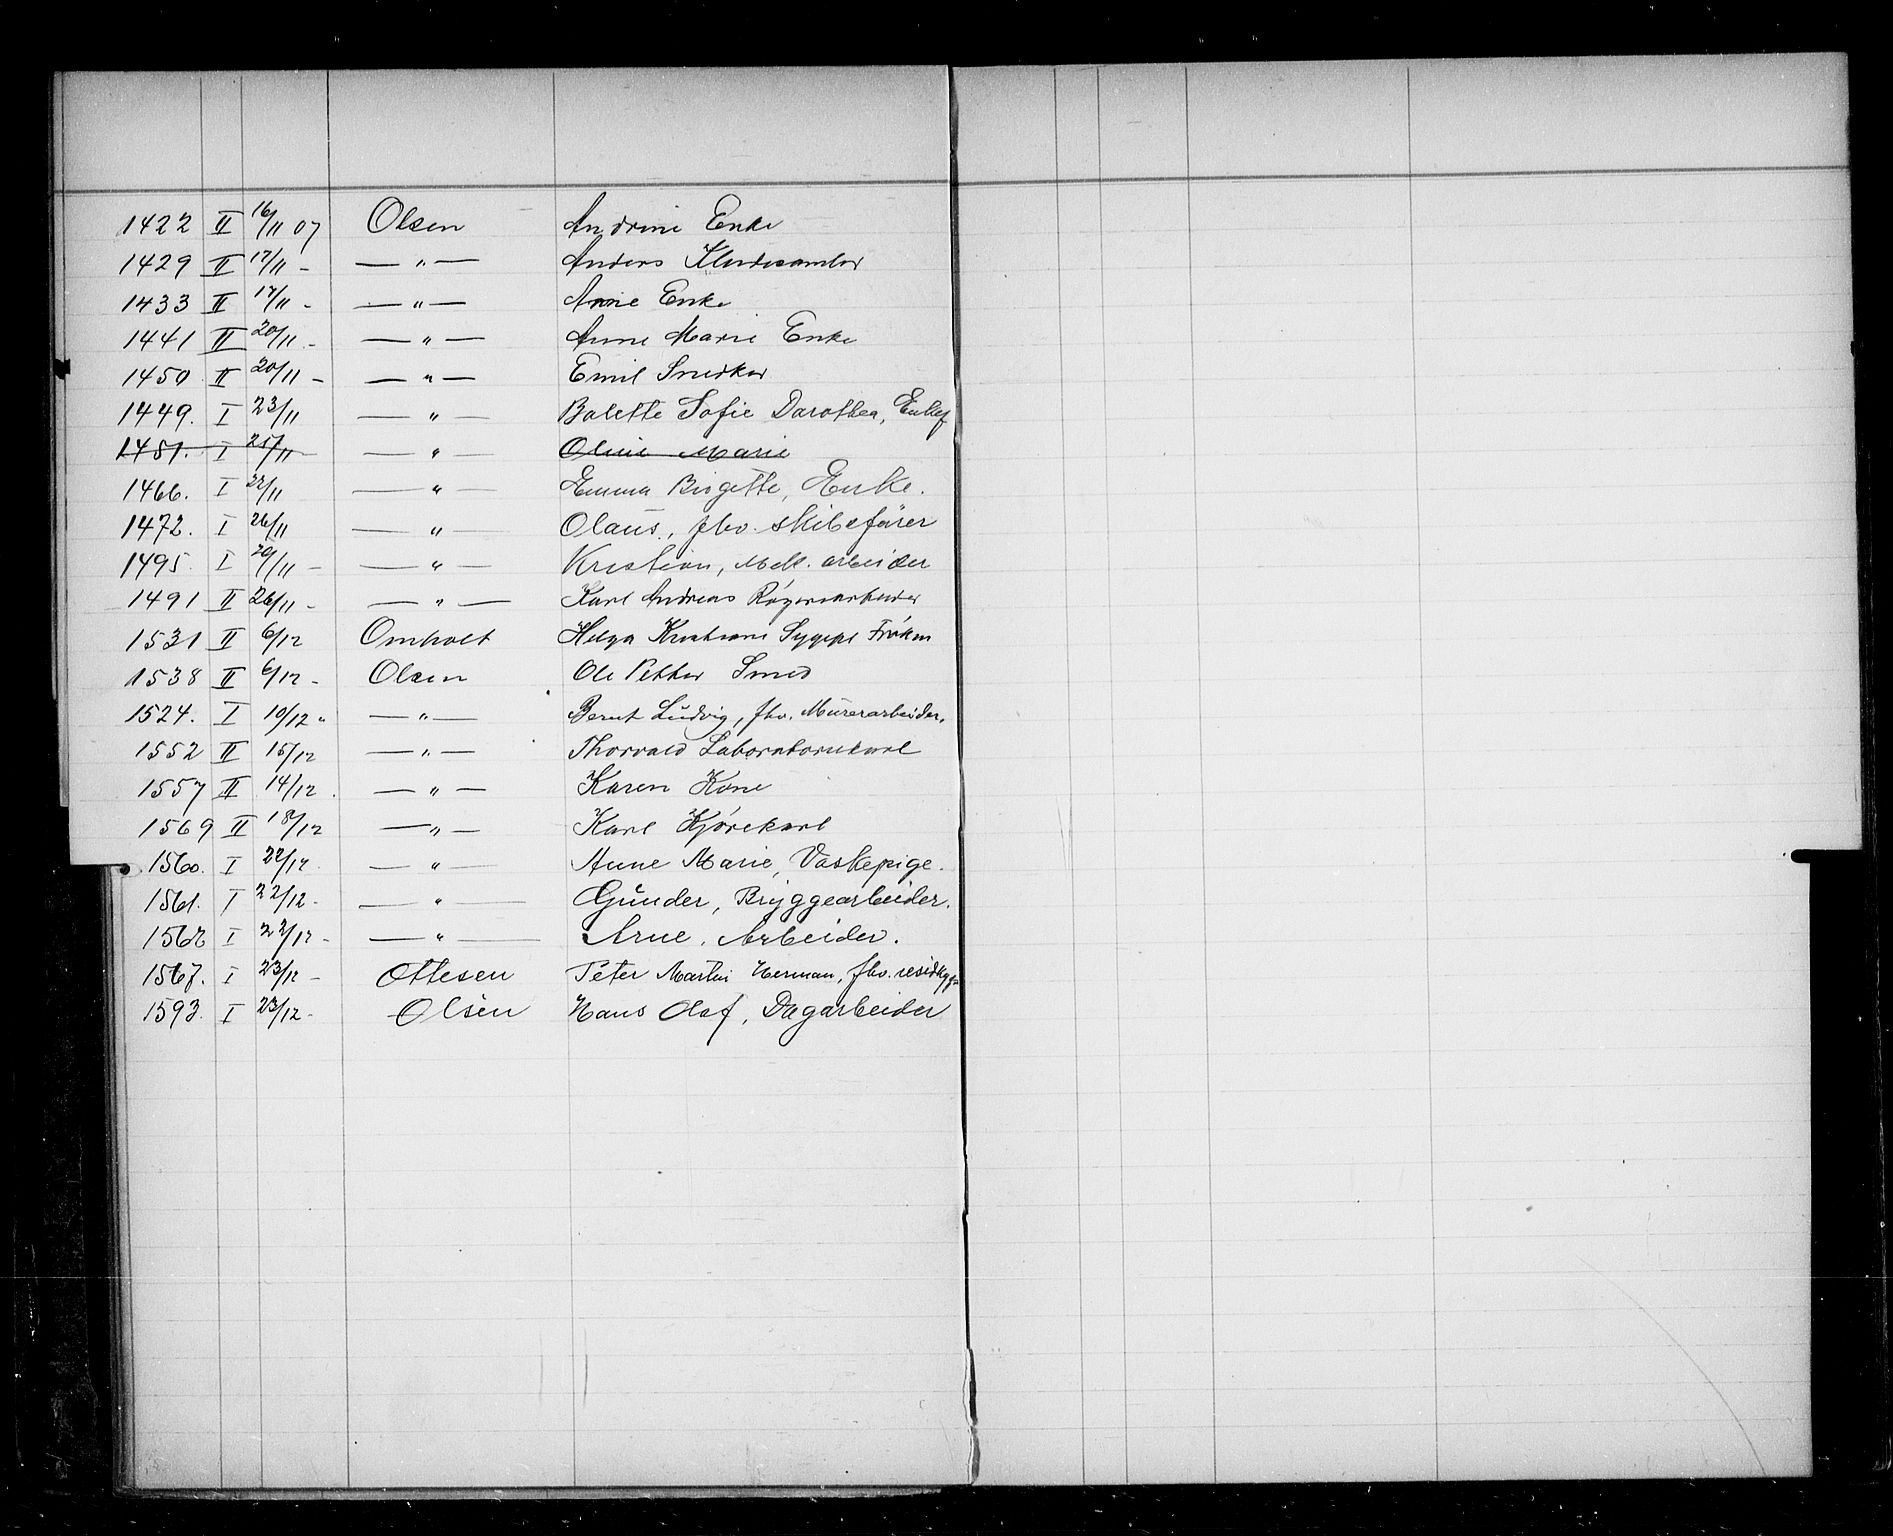 1422 II 16/11 07 Olsen Andrine Enke
1429 II 17/11 - — " — Anders Kludesamler
1433 II 17/11 - — " — Anne Enke
1441 II 20/11 - — " — Anne Marie Enke
1450 II 20/11 - — " — Emil Snedker
1449. I 23/11 — " — Bolette Sofie Dorothea, Enkef
1451. I 25/11 — " — Oline Marie
1466. I 22/11 — " — Emma Birgette, Enke.
1472. I 26/11 — " — Olaus, fhv. skibsfører
1495. I 29/11 - — " — Kristian, Mek. arbeider
1491 II 26/11 - — " — Karl Andreas
1531 II 6/12 Omholt Helga Kristiane Sygepl Frøken
1538 II 6/12 - Olsen Ole Petter Smed
1524. I 10/12 " — " — Bernt Ludvig, fhv. Murerarbeider.
1552 II 15/12 — " — Thorvald Laboratoriekarl
1557 II 14/12 . — " — Karen Kone
1569 II 18/12 — " — Karl Kjørekarl
1560. I 22/12. — " — Anne Marie, Vaskepige.
1561. I 22/12. — " — Gunder, Bryggearbeider.
1562 I 22/12 - — " — Arne, Arbeider.
1567. I 23/12 - Ottesen Peter Martin Herman, fhv.
1593. I 23/12. Olsen Hans Olaf, Dagarbeider